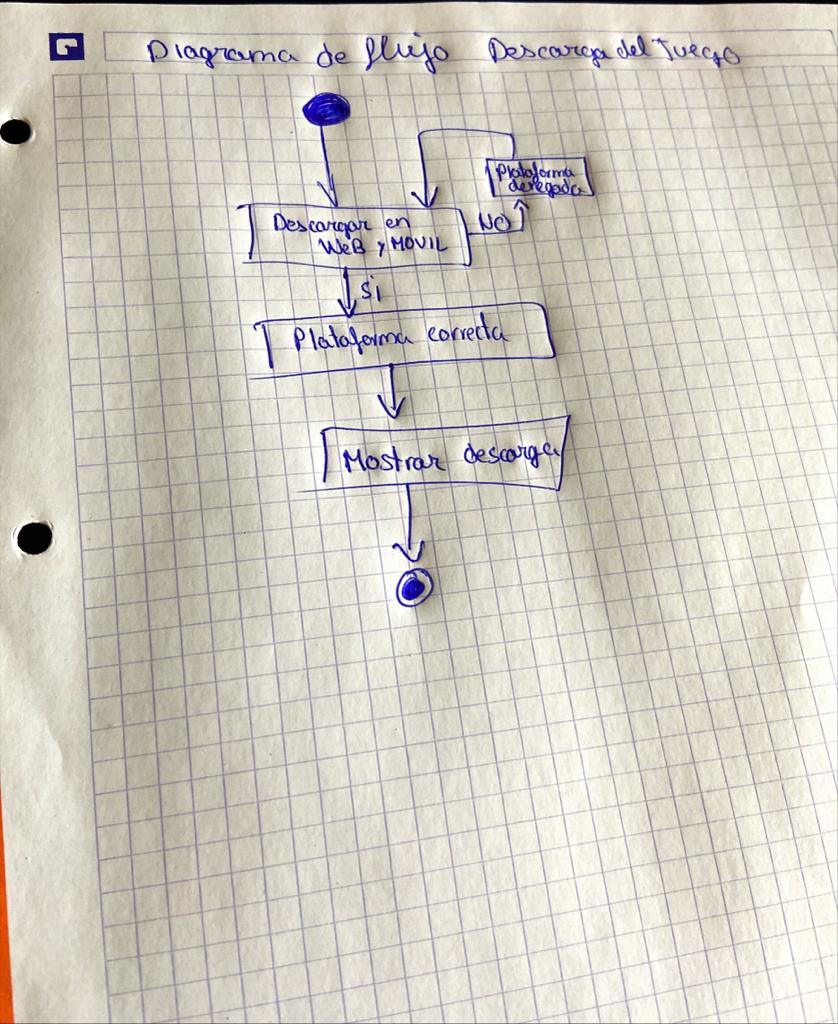 Diagrama de flujo Descarga del Juego
Plataforma
denegada
Descargar en
WeB y MOVIL
NO
Si
Plataforma correcta
Mostrar descarga